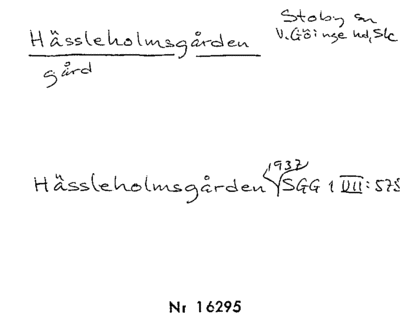 Hässleholmsgården
Stoby sn
V. Göinge hd, Sk
gård
1937
Hässleholmsgården SGG 1 VII: 575
Nr 16295